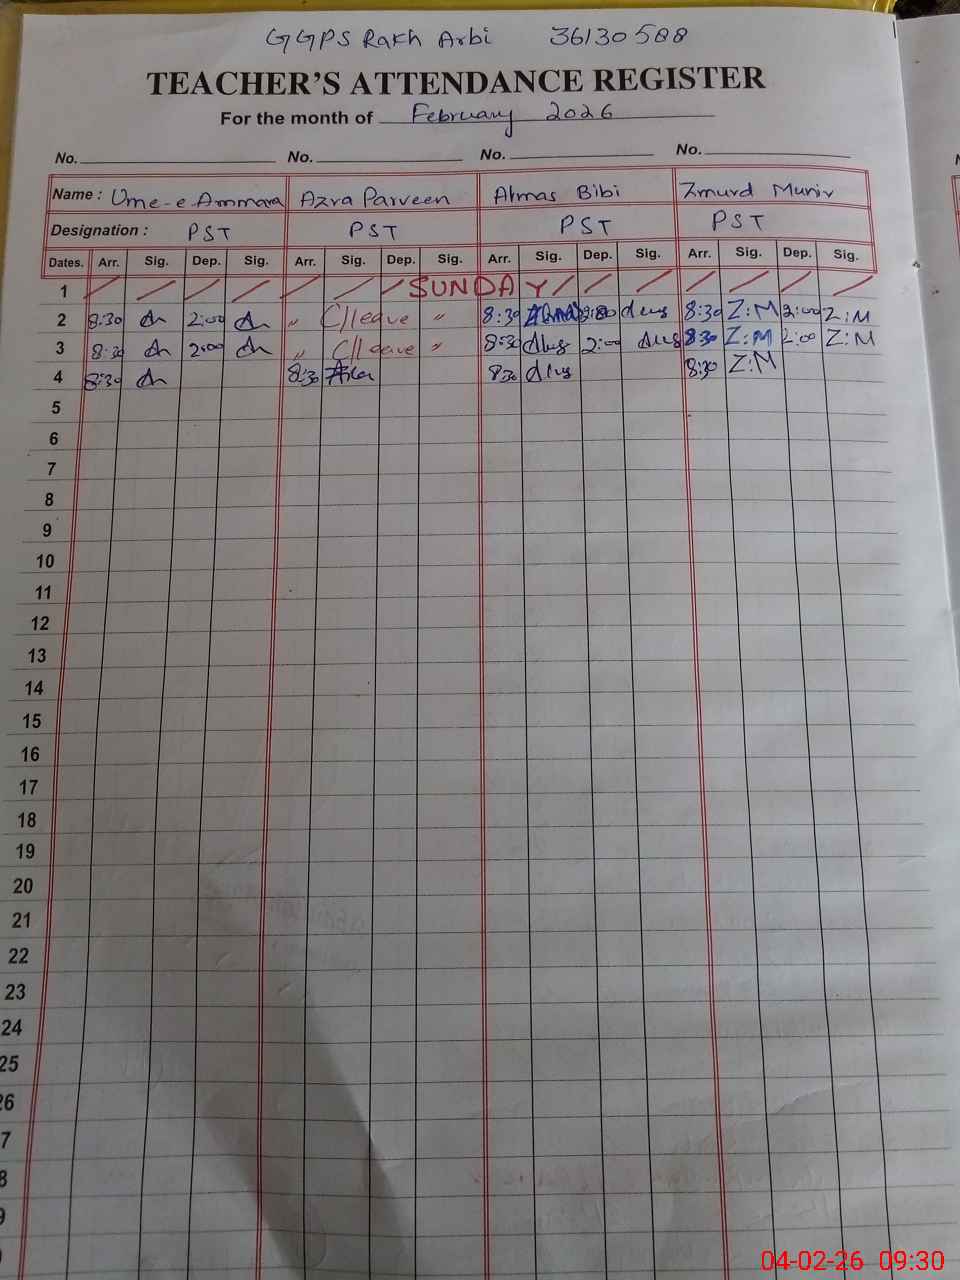 GGPS Rakh Arbi 36130588
TEACHER'S ATTENDANCE REGISTER
For the month of February 2026
No. No. No. No.
Name : Ume-e-Ammara Azra Parveen Almas Bibi Zmurd Munir
Designation : PST PST PST PST
Dates. Arr. Sig. Dep. Sig. Arr. Sig. Dep. Sig. Arr. Sig. Dep. Sig. Arr. Sig. Dep. Sig.
1 SUNDAY
2 8:30 2:00 " C/leave " 8:30 8:30 Z:M 2:00 Z:M
3 8:30 2:00 " C/leave " 8:30 2:00 8:30 Z:M 2:00 Z:M
4 8:30 8:30 8:30 8:30 Z:M
5
6
7
8
9
10
11
12
13
14
15
16
17
18
19
20
21
22
23
24
25
26
7
8
9
04-02-26 09:30